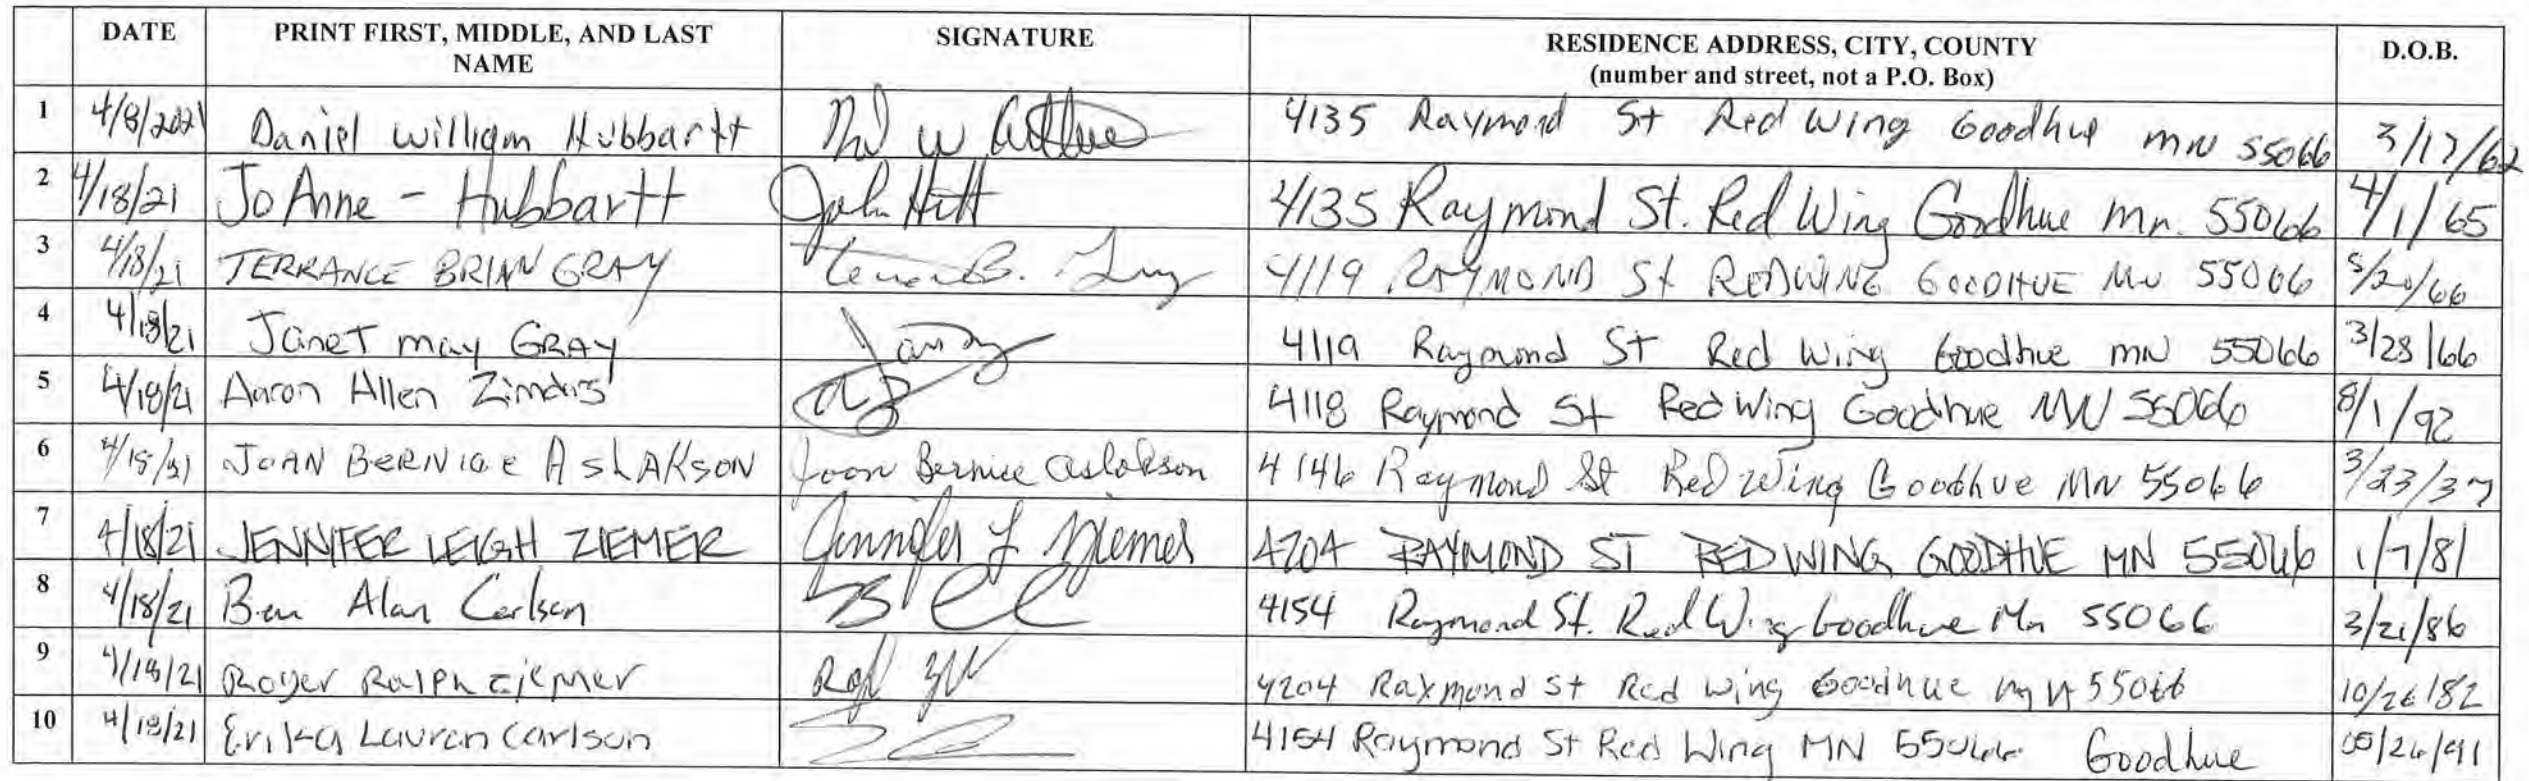 DATE PRINT FIRST, MIDDLE, AND LAST NAME SIGNATURE RESIDENCE ADDRESS, CITY, COUNTY (number and street, not a P.O. Box) D.O.B.
1 4/8/2021 Daniel William Hubbartt 4135 Raymond St Red Wing Goodhue MN 55066 3/17/62
2 4/18/21 JoAnne - Hubbartt 4135 Raymond St. Red Wing Goodhue Mn. 55066 4/1/65
3 4/18/21 TERRANCE BRIAN GRAY 4119 RAYMOND St REDWING GOODHUE MN 55066 5/20/66
4 4/18/21 JaneT may GRAY 4119 Raymond ST Red Wing Goodhue mN 55066 3/28/66
5 4/18/21 Aaron Allen Zimdars 4118 Raymond St Red Wing Goodhue MN 55066 8/1/92
6 4/18/21 JOAN BERNICE ASLAKSON Joan Bernice Aslakson 4146 Raymond St Red Wing Goodhue MN 55066 3/23/37
7 4/18/21 JENNIFER LEIGH ZIEMER Jennifer L Ziemer 4204 RAYMOND ST RED WING GOODHUE MN 55066 1/7/81
8 4/18/21 Ben Alan Carlson 4154 Raymond St. Red Wing Goodhue Mn 55066 3/21/86
9 4/18/21 Roger Ralph ziemer 4204 Raymond St Red wing Goodhue MN 55066 10/26/82
10 4/18/21 Erika Lauren Carlson 4154 Raymond St Red Wing MN 55066 Goodhue 05/26/91